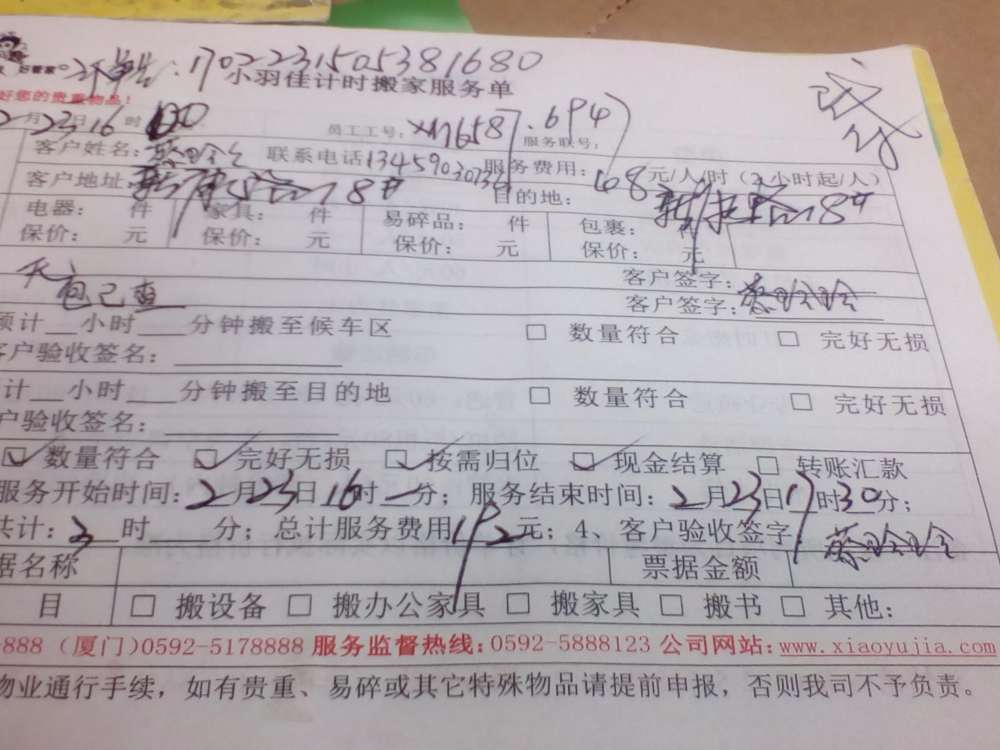 好管家
订单号:1702231505381680
小羽佳计时搬家服务单
好您的贵重物品!
2月23日16时00 员工工号:XM7658、694 服务联号:
客户姓名:蔡玲玲 联系电话 服务费用:68元/人/时(2小时起/人)
客户地址: 18# 目的地: 18#
电器: 件 家具: 件 易碎品: 件 包裹:
保价: 元 保价: 元 保价: 元 保价: 元
客户签字:
自己查 客户签字:蔡玲玲
预计 小时 分钟搬至候车区 □ 数量符合 □ 完好无损
客户验收签名:
计 小时 分钟搬至目的地 □ 数量符合 □ 完好无损
户验收签名:
☑数量符合 ☑完好无损 ☑按需归位 ☑现金结算 □ 转账汇款
服务开始时间:2月23日16时 分;服务结束时间:2月23日17时30分;
共计: 时 分;总计服务费用 元;4、客户验收签字:蔡玲玲
据名称 票据金额
目 □ 搬设备 □ 搬办公家具 □ 搬家具 □ 搬书 □ 其他:
-888 (厦门)0592-5178888 服务监督热线:0592-5888123 公司网站:www.xiaoyujia.com
物业通行手续,如有贵重、易碎或其它特殊物品请提前申报,否则我司不予负责。